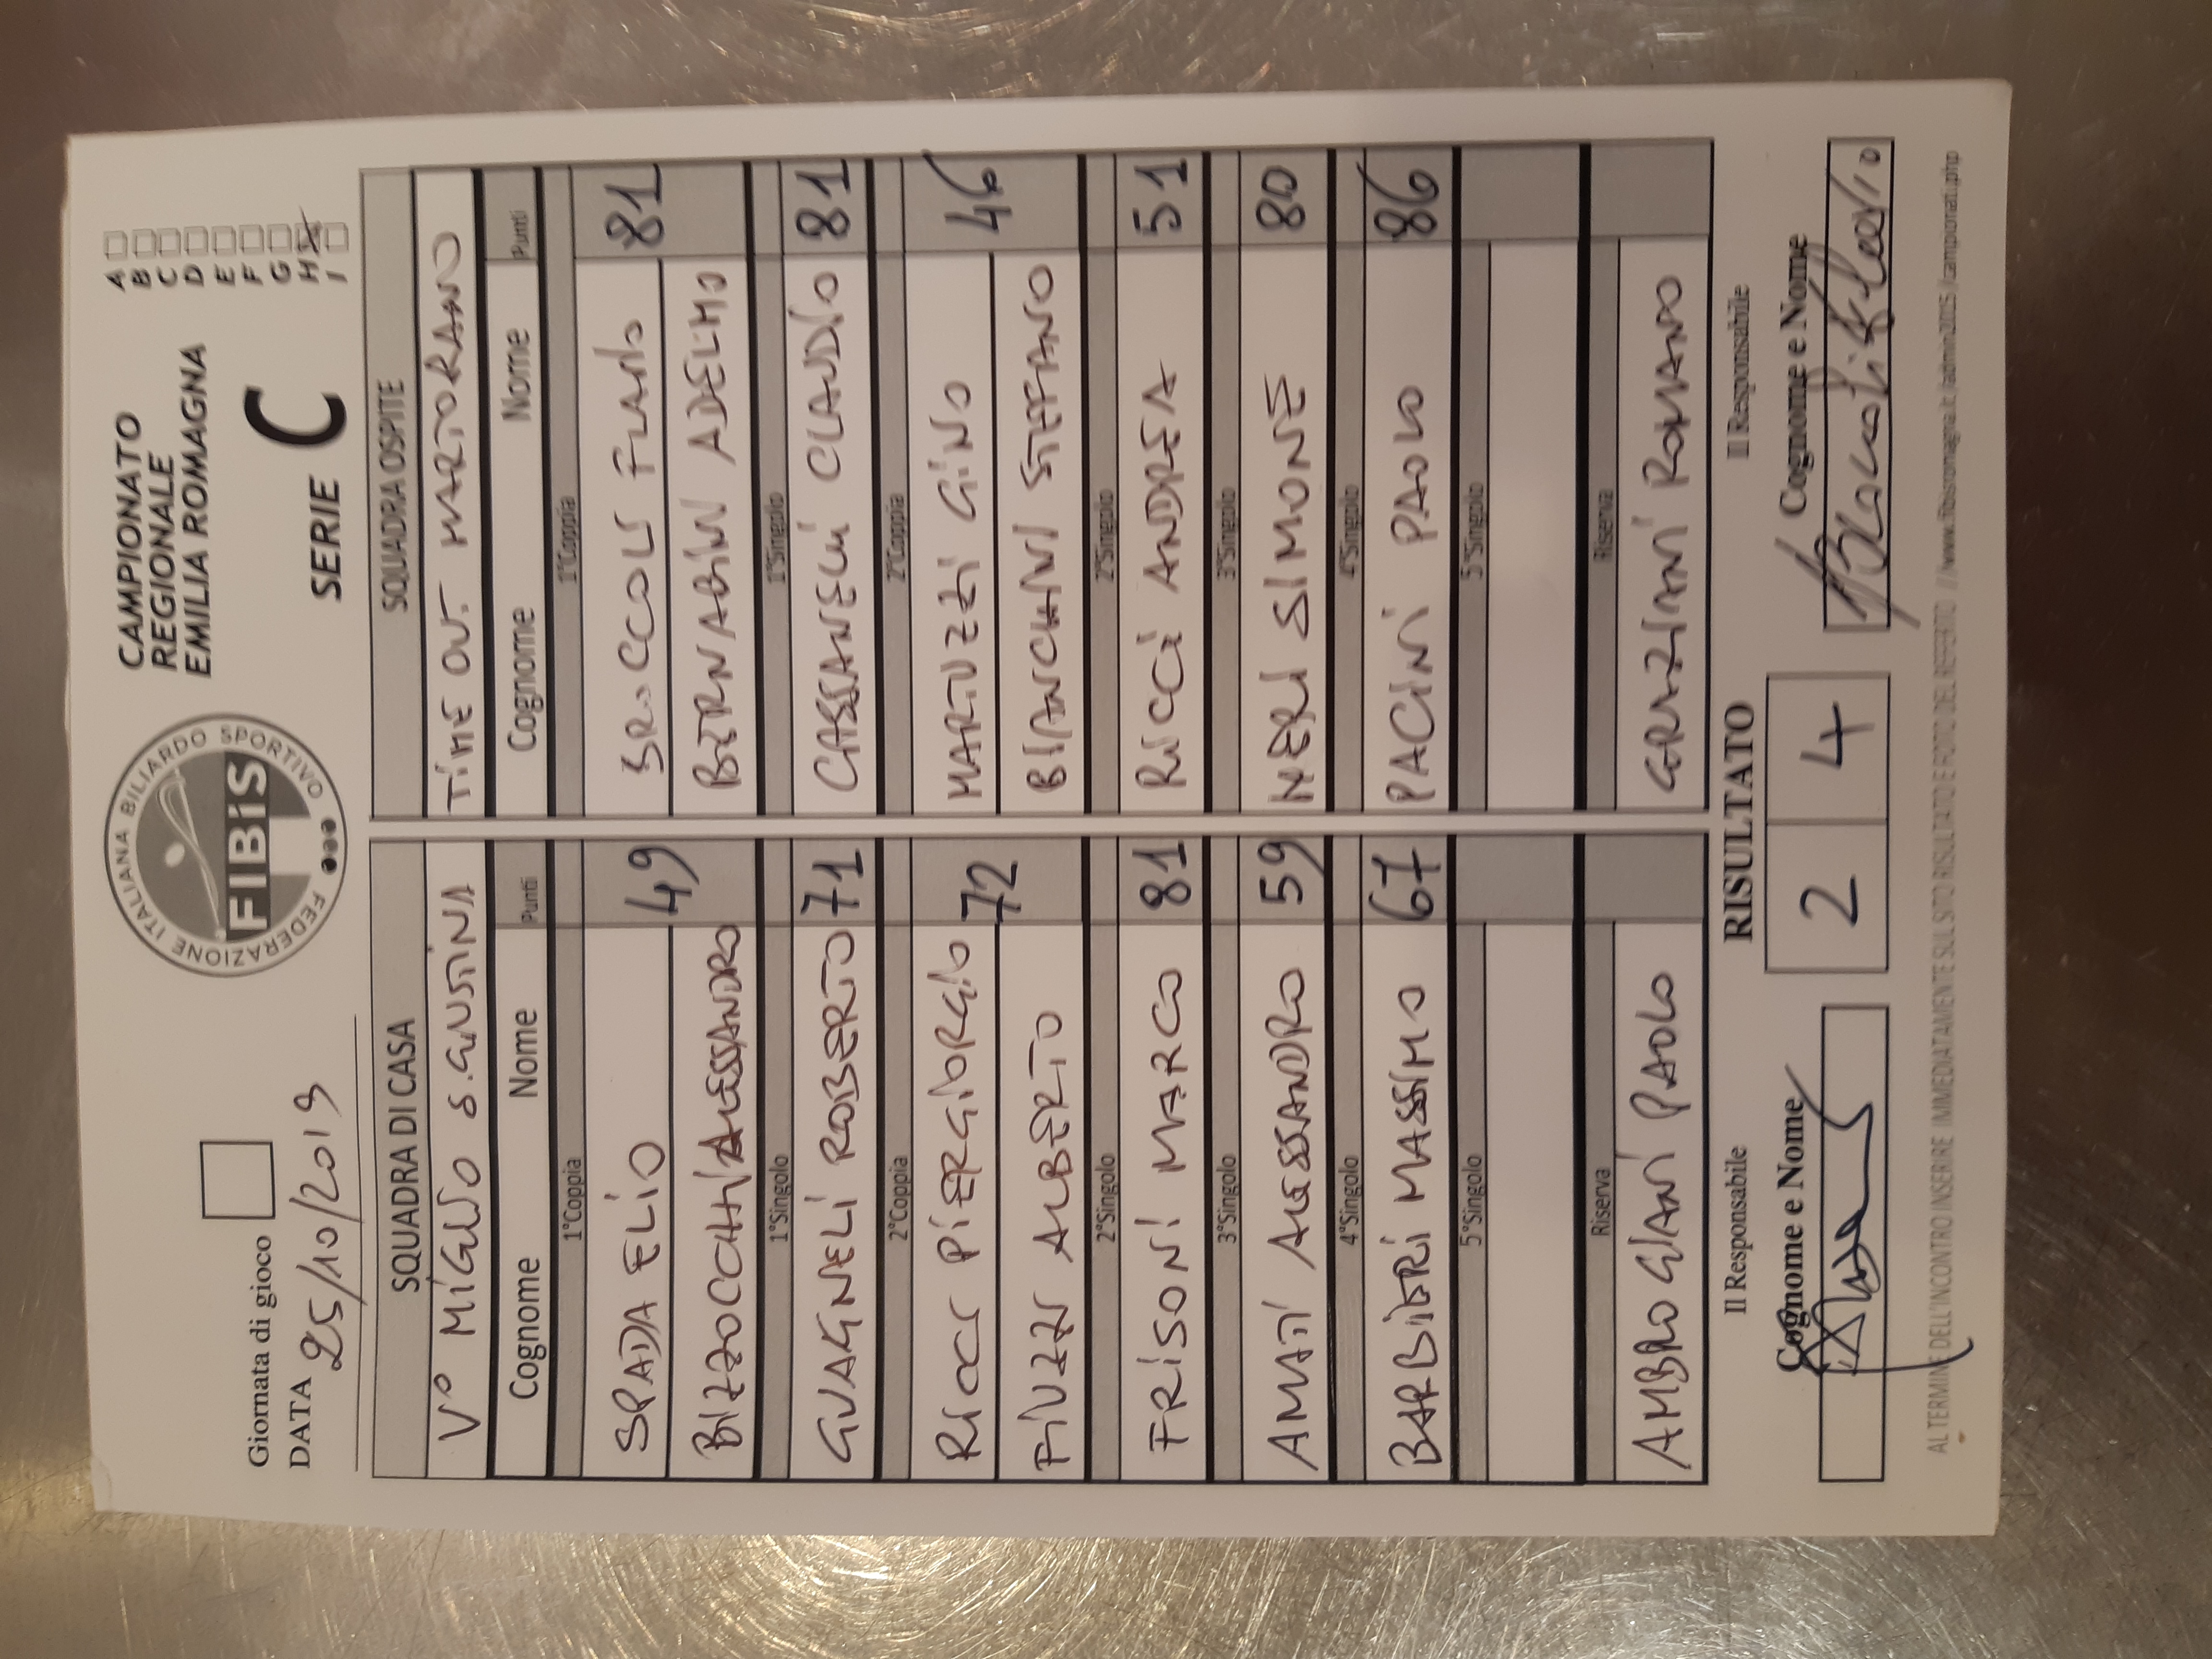 Giornata di gioco
DATA 25/10/2019
FEDERAZIONE ITALIANA BILIARDO SPORTIVO
FIBiS
CAMPIONATO
REGIONALE
EMILIA ROMAGNA
SERIE C
A
B
C
D
E
F
G
H X
I
SQUADRA DI CASA SQUADRA OSPITE
V° MIGLIO S.GIUSTINA TIME OUT MARTORANO
Cognome Nome Punti Cognome Nome Punti
1°Coppia 1°Coppia
SPADA ELIO 49 BROCCOLI FLAVIO 81
BIZZOCCHI ALESSANDRO BERNABINI ADELMO
1°Singolo 1°Singolo
GUAGNELI ROBERTO 71 CASSANELLI CLAUDIO 81
2°Coppia 2°Coppia
RICCI PIERGIORGIO 72 MARTUZZI GINO 46
FIUZZI ALBERTO BIANCHINI STEFANO
2°Singolo 2°Singolo
FRISONI MARCO 81 RICCI ANDREA 51
3°Singolo 3°Singolo
AMATI ALESSANDRO 59 NERI SIMONE 80
4°Singolo 4°Singolo
BARBIERI MASSIMO 67 PACINI PAOLO 86
5°Singolo 5°Singolo
Riserva Riserva
AMBROGIANI PAOLO GRAZIANI ROMANO
Il Responsabile RISULTATO Il Responsabile
Cognome e Nome 2 4 Cognome e Nome
AL TERMINE DELL'INCONTRO INSERIRE IMMEDIATAMENTE SUL SITO RISULTATO E FOTO DEL REFERTO // www.fibisromagna.it /admin2015 /campionati.php